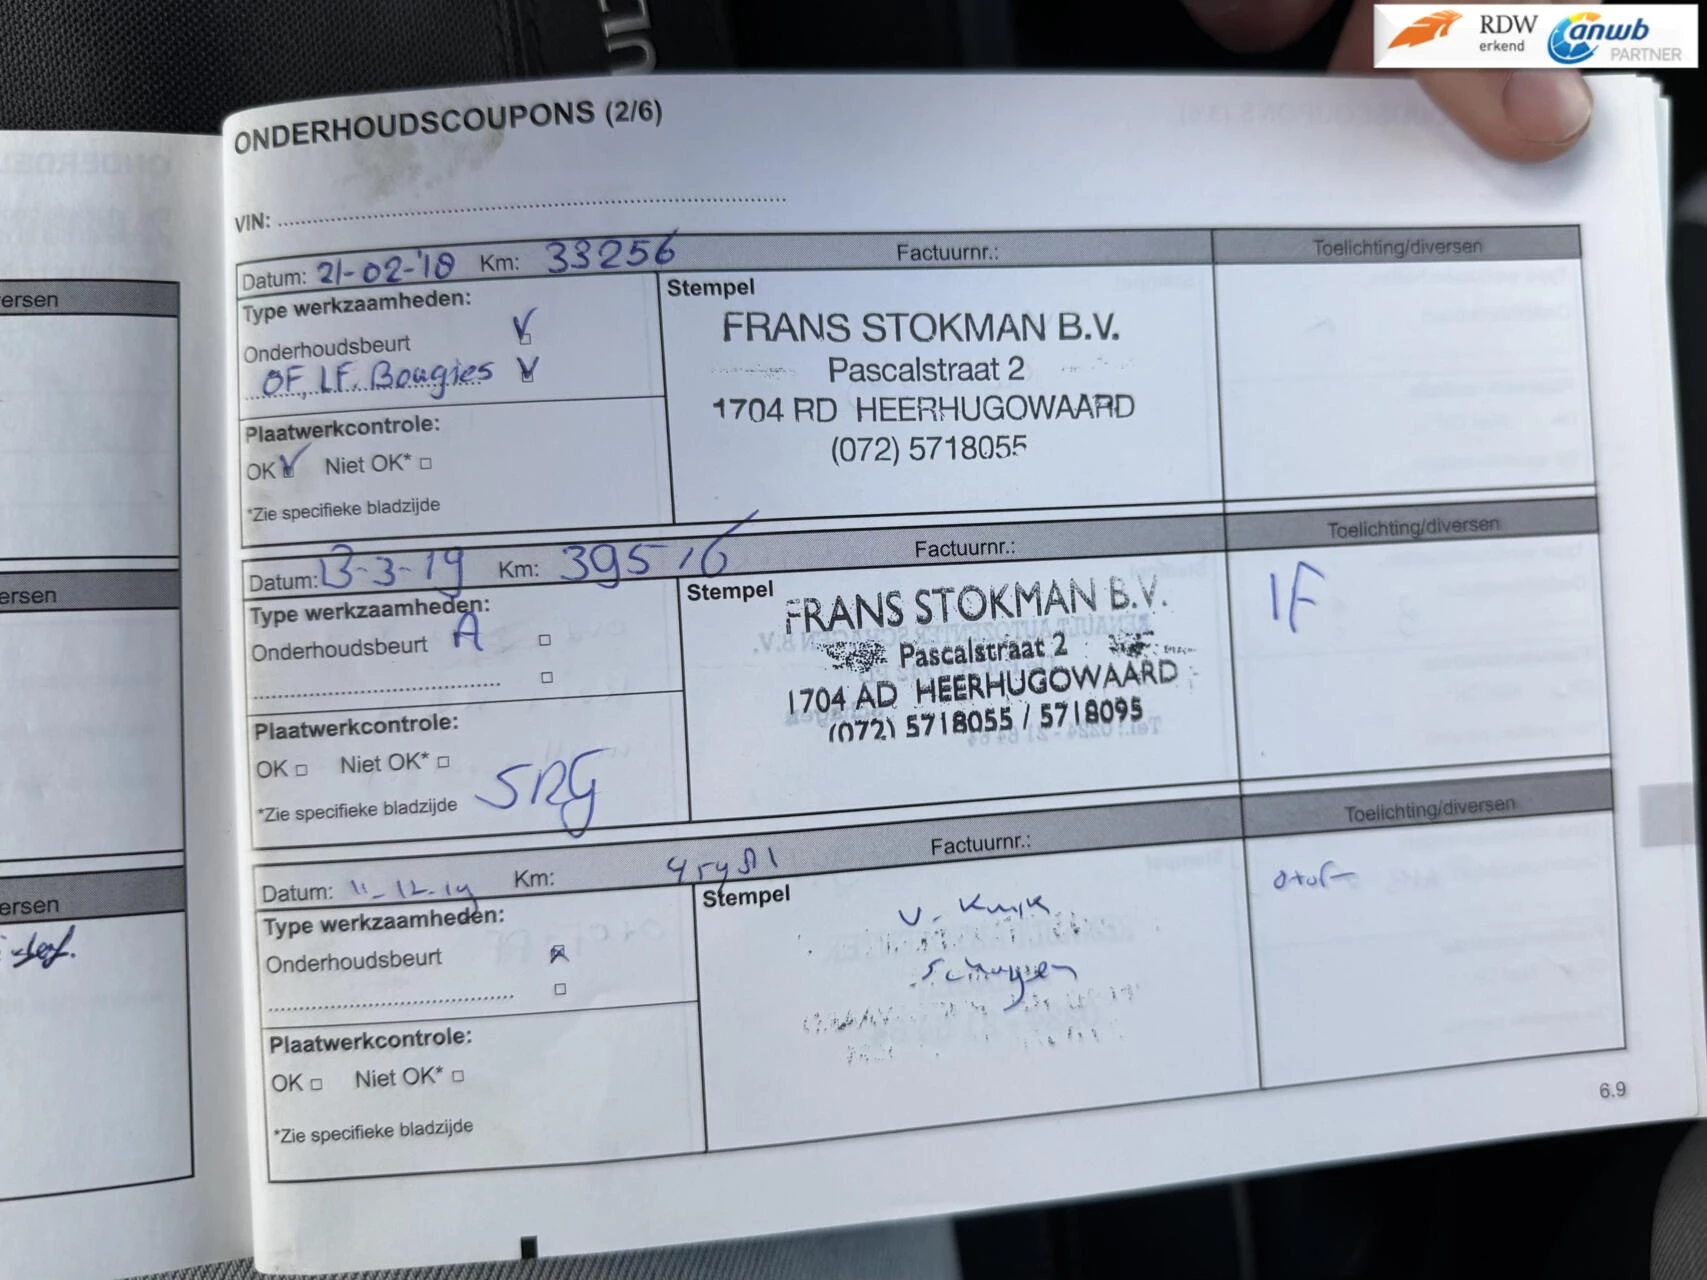 RDW
erkend
anwb
PARTNER
ONDERHOUDSCOUPONS (2/6)
VIN:
Datum: 21-02-'18 Km: 33256 Factuurnr.: Toelichting/diversen
Type werkzaamheden:
Onderhoudsbeurt
OF, LF. Bougies
Plaatwerkcontrole:
OK Niet OK*
*Zie specifieke bladzijde
Stempel
FRANS STOKMAN B.V.
Pascalstraat 2
1704 RD HEERHUGOWAARD
(072) 5718055
Datum: 13-3-19 Km: 39516 Factuurnr.: Toelichting/diversen
Type werkzaamheden:
Onderhoudsbeurt A
Plaatwerkcontrole:
OK Niet OK*
*Zie specifieke bladzijde
Stempel
FRANS STOKMAN B.V.
Pascalstraat 2
1704 AD HEERHUGOWAARD
(072) 5718055 / 5718095
IF
Datum: 11-12-19 Km: Factuurnr.: Toelichting/diversen
Type werkzaamheden:
Onderhoudsbeurt
Plaatwerkcontrole:
OK Niet OK*
*Zie specifieke bladzijde
Stempel
Schagen
6.9
ersen
ersen
ersen